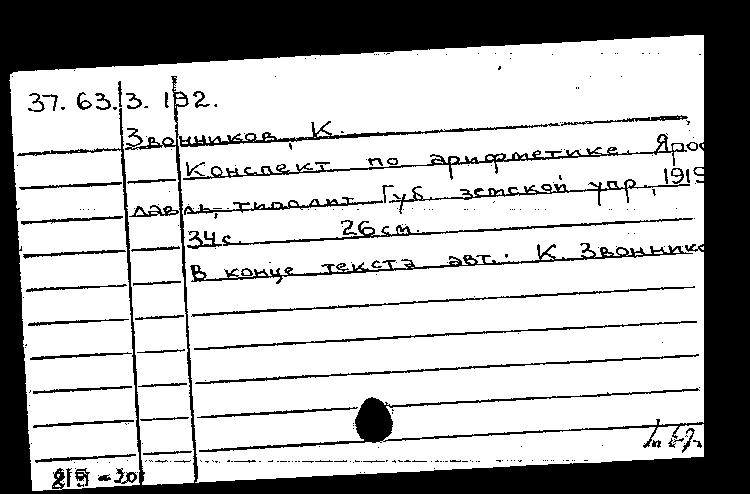 37. 63. 3. 192.
Звонников, К.
Конспект по арифметике. Яро
лавль, типолит. Губ. земской упр., 1919
34 с. 26 см.
В конце текста авт.: К. Звоннико